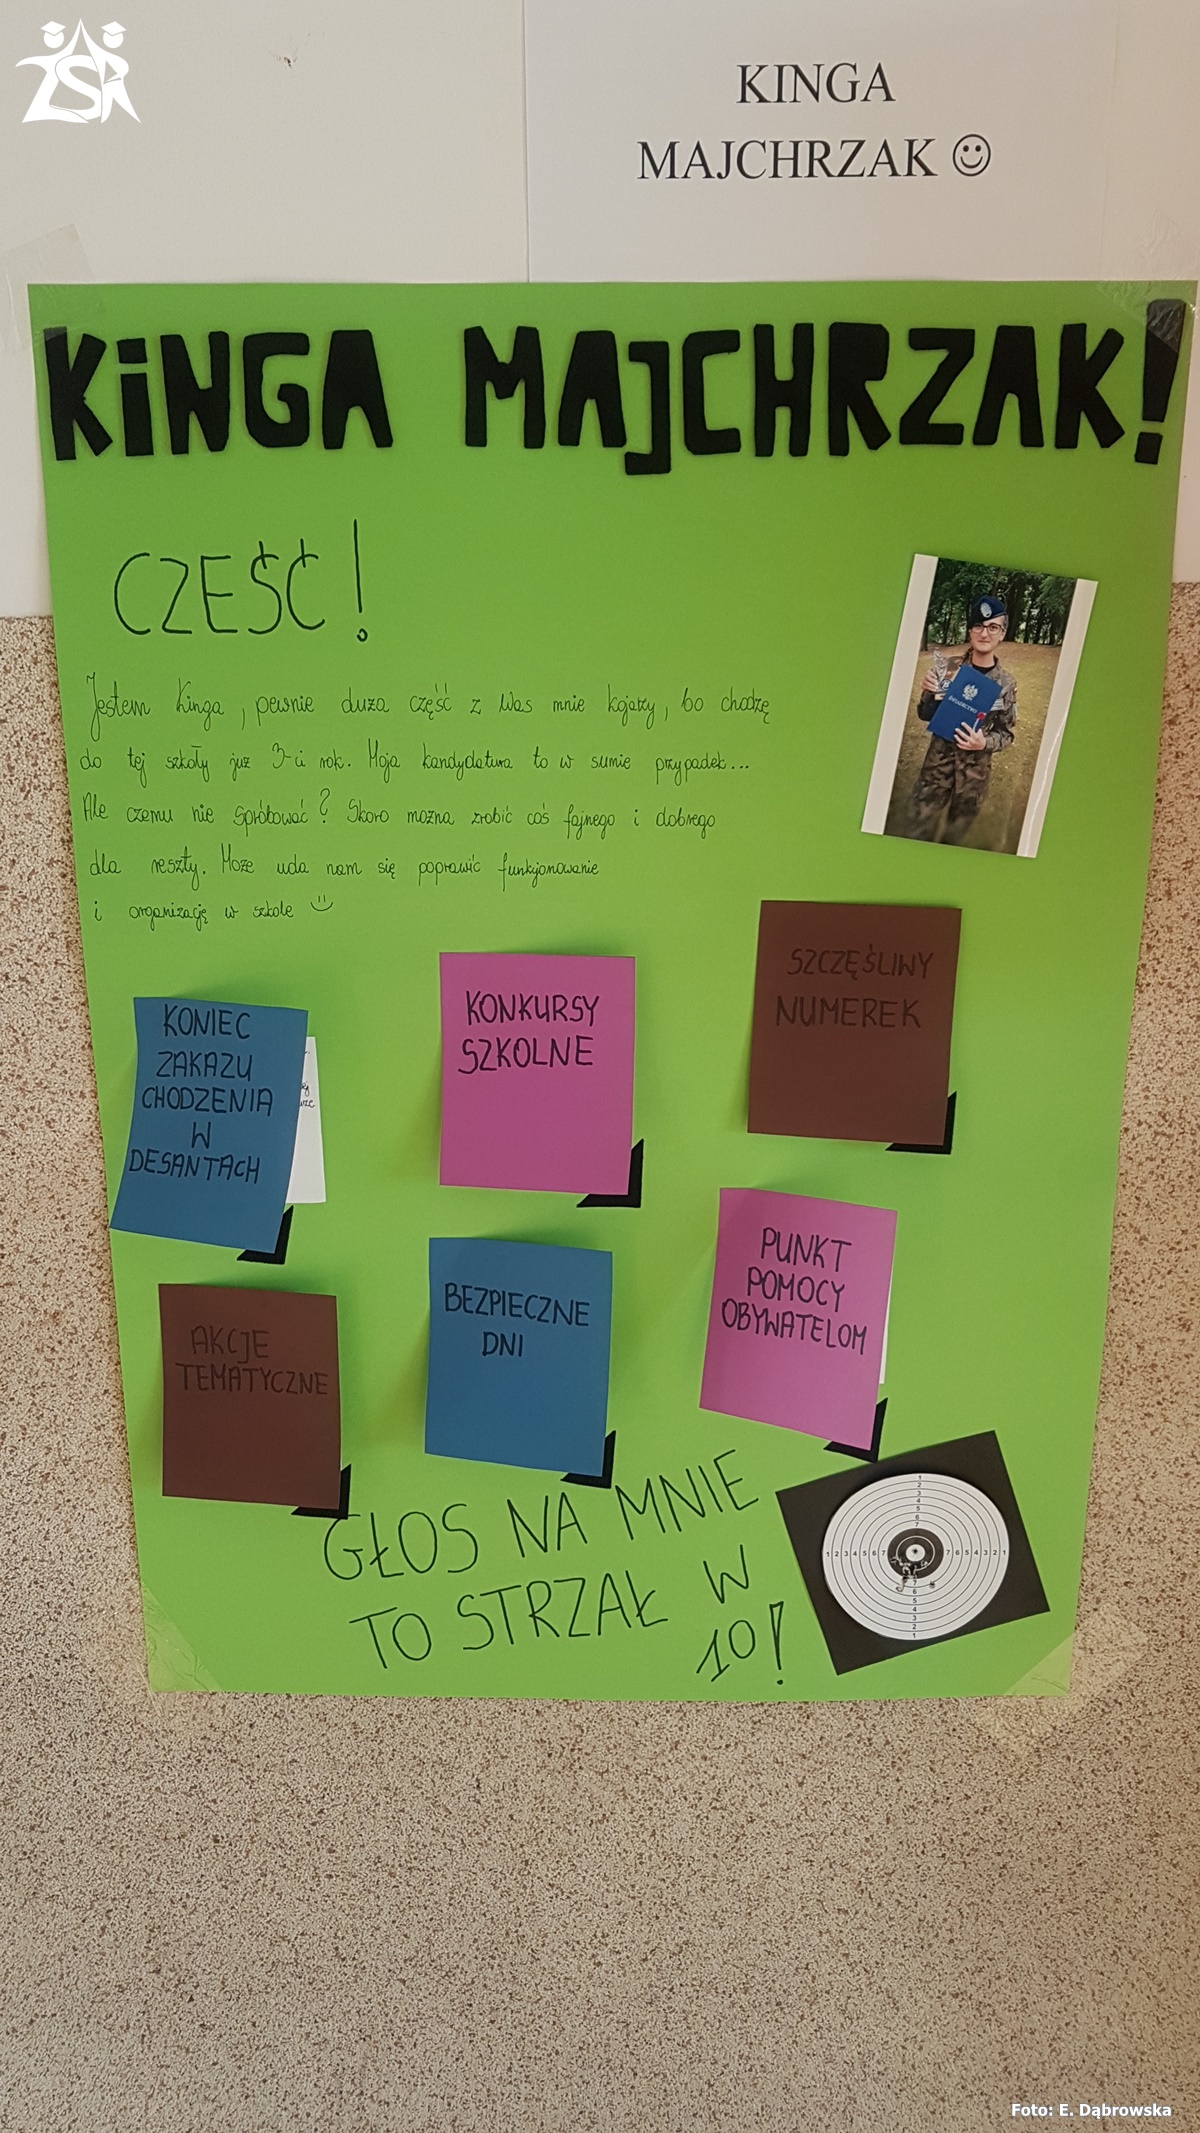 ZSR
KINGA
MAJCHRZAK ☺
KiNGA MAJCHRZAK!
CZEŚĆ!
Jestem Kinga, pewnie duża część z Was mnie kojarzy, bo chodzę
do tej szkoły już 3-ci rok. Moja kandydatura to w sumie przypadek...
Ale czemu nie spróbować? Skoro można zrobić coś fajnego i dobrego
dla reszty. Może uda nam się poprawić funkcjonowanie
i organizację w szkole :)
KONIEC
ZAKAZU
CHODZENIA
W
DESANTACH
KONKURSY
SZKOLNE
SZCZĘŚLIWY
NUMEREK
AKCJE
TEMATYCZNE
BEZPIECZNE
DNI
PUNKT
POMOCY
OBYWATELOM
GŁOS NA MNIE
TO STRZAŁ W
10!
Foto: E. Dąbrowska